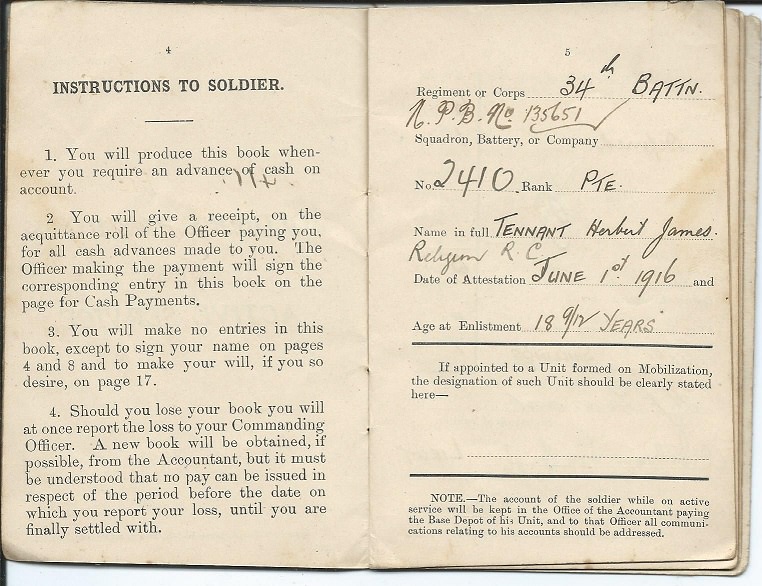 4
INSTRUCTIONS TO SOLDIER.
1. You will produce this book when-
ever you require an advance of cash on
account.
2 You will give a receipt, on the
acquittance roll of the Officer paying you,
for all cash advances made to you. The
Officer making the payment will sign the
corresponding entry in this book on the
page for Cash Payments.
3. You will make no entries in this
book, except to sign your name on pages
4 and 8 and to make your will, if you so
desire, on page 17.
4. Should you lose your book you will
at once report the loss to your Commanding
Officer. A new book will be obtained, if
possible, from the Accountant, but it must
be understood that no pay can be issued in
respect of the period before the date on
which you report your loss, until you are
finally settled with.
5
Regiment or Corps 34th BATTN.
N.P.B. No 135651
Squadron, Battery, or Company
No. 2410 Rank PTE.
Name in full TENNANT Herbert James.
Religion R.C.
Date of Attestation JUNE 1st 1916 and
Age at Enlistment 18 9/12 YEARS
If appointed to a Unit formed on Mobilization,
the designation of such Unit should be clearly stated
here—
NOTE.—The account of the soldier while on active
service will be kept in the Office of the Accountant paying
the Base Depot of his Unit, and to that Officer all communi-
cations relating to his accounts should be addressed.